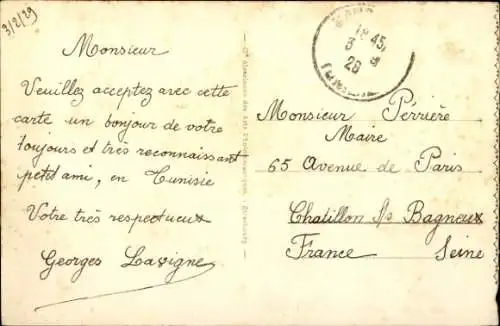 3/2/29
Monsieur
Veuillez acceptez avec cette
carte un bonjour de votre
toujours et très reconnaissant
petit ami, en Tunisie
Votre très respectueux
Georges Lavigne
18 45
3
28
Monsieur Perrière
Maire
65 Avenue de Paris
Chatillon s/s Bagneux
France Seine